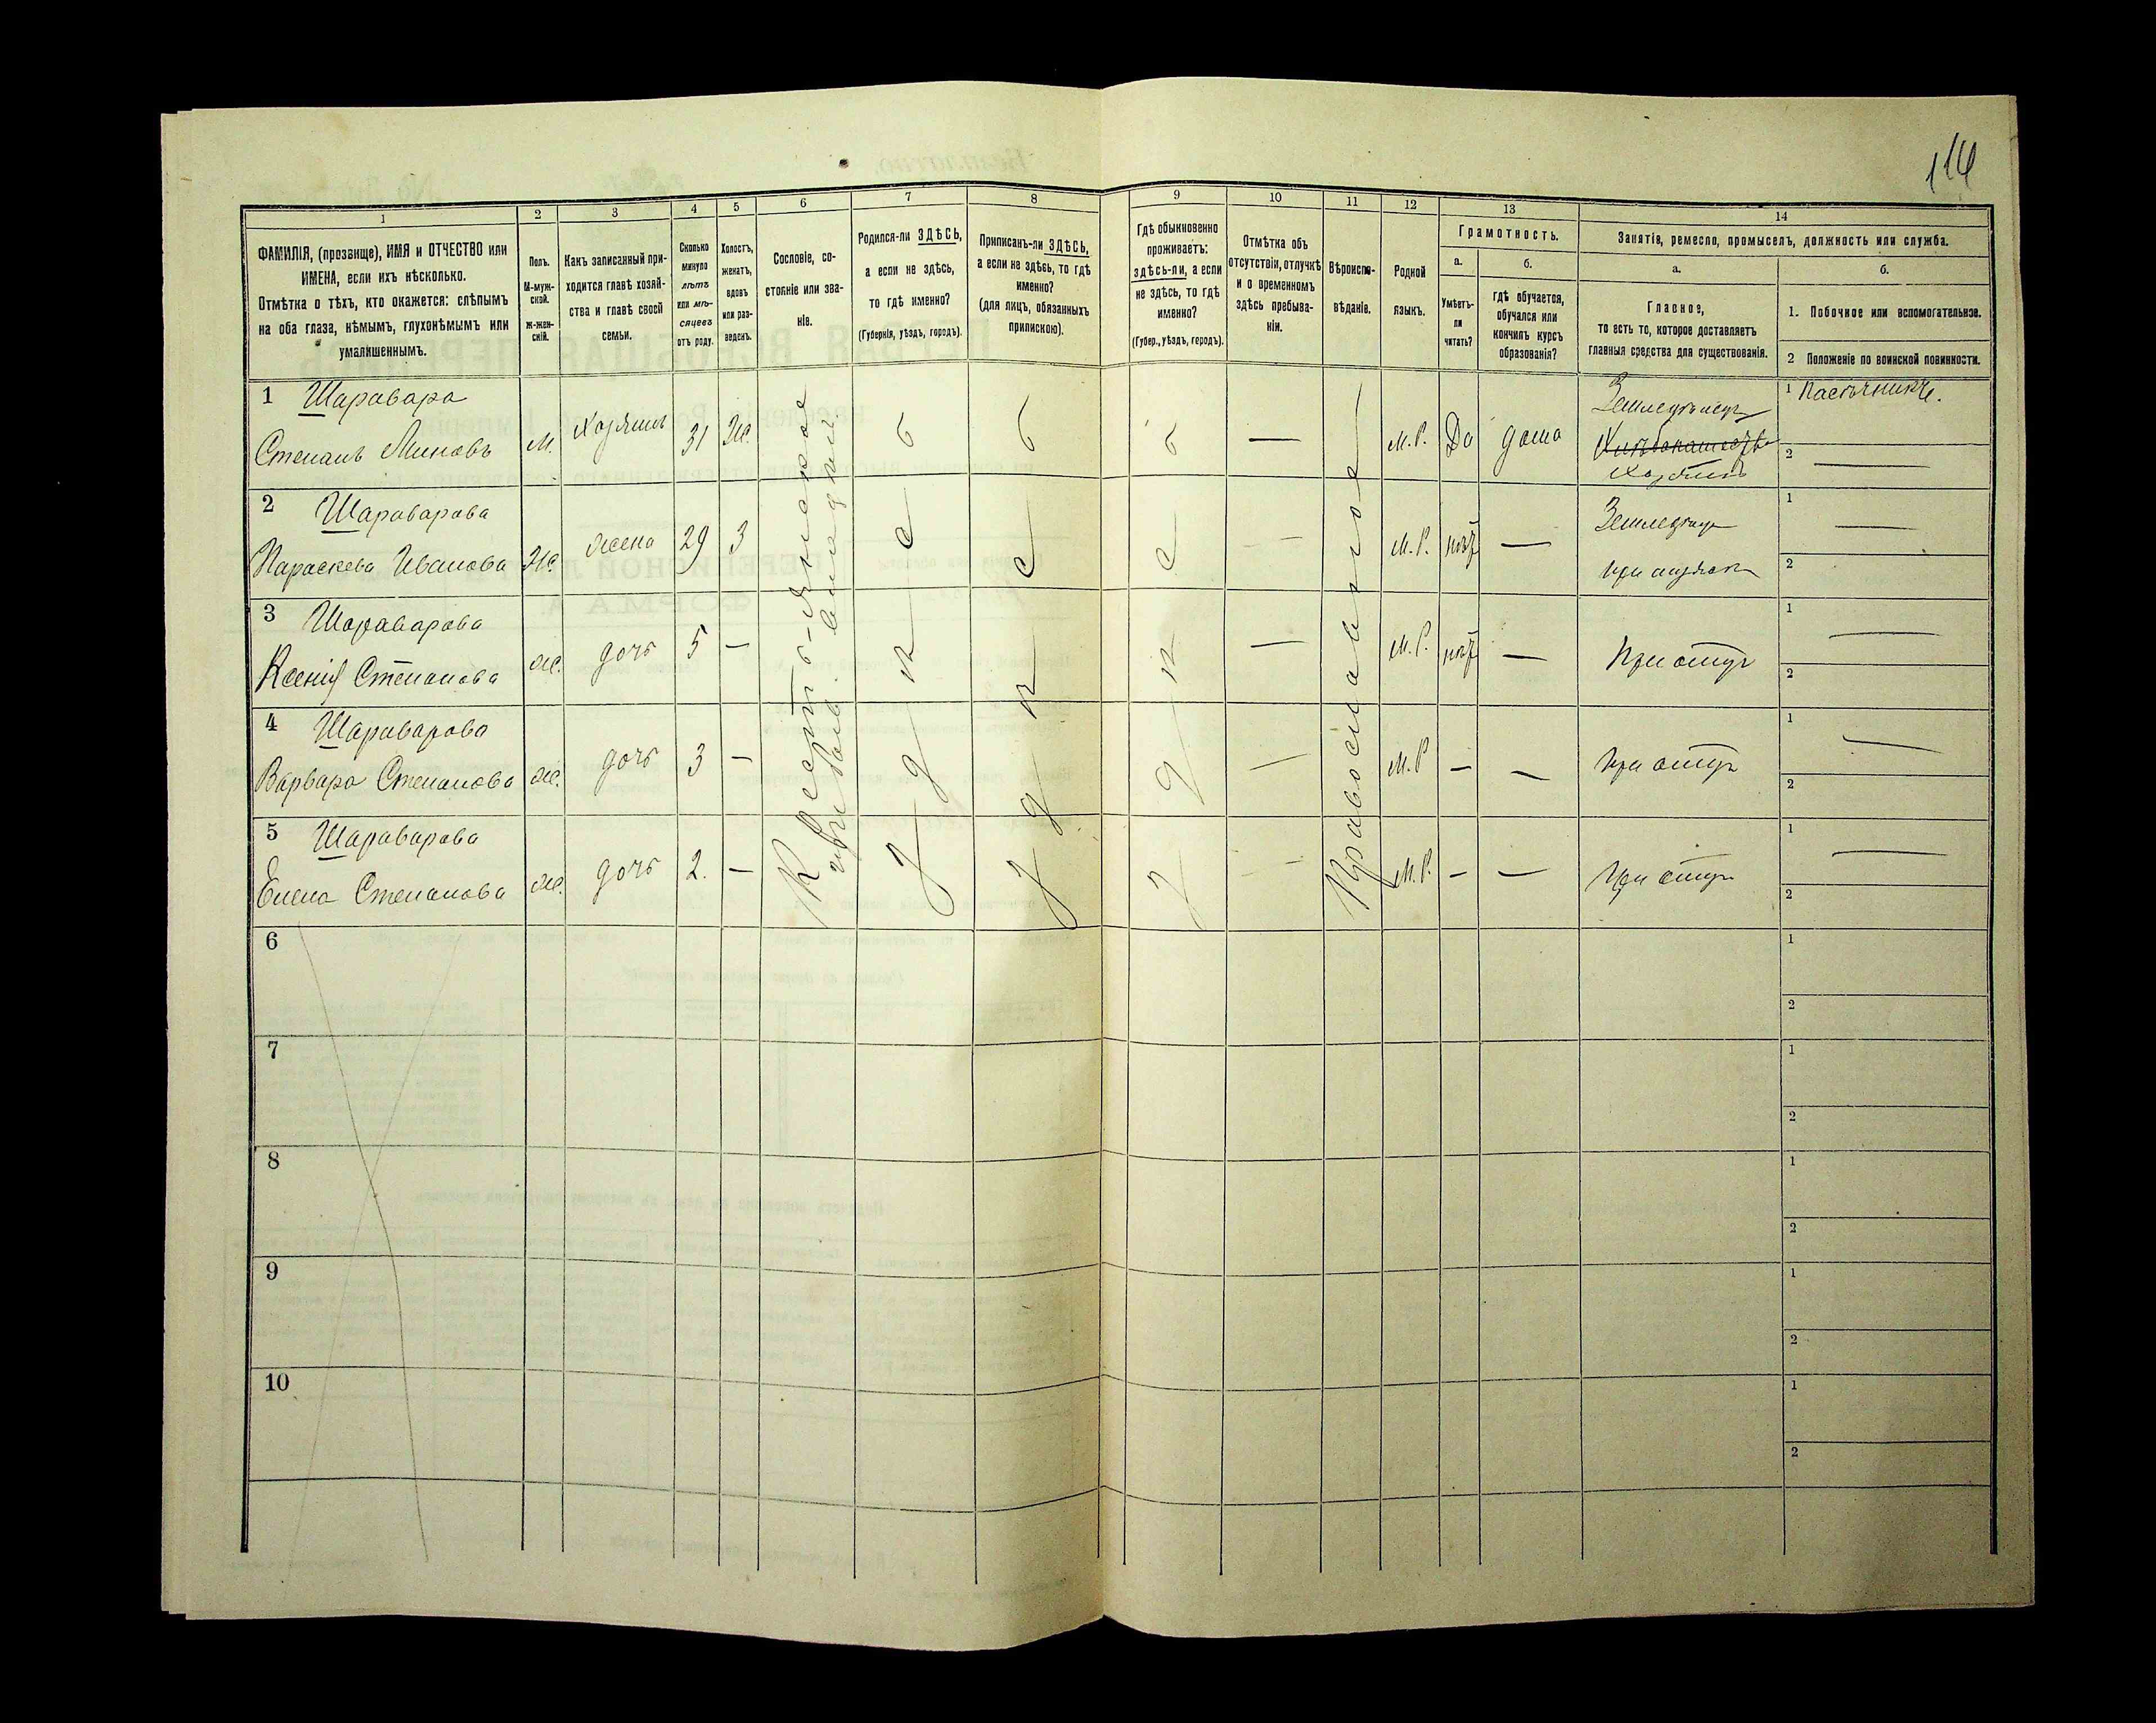 116
1 2 3 4 5 6 7 8 9 10 11 12 13 14
ФАМИЛІЯ, (прозвище), ИМЯ и ОТЧЕСТВО или
ИМЕНА, если ихъ нѣсколько.
Отмѣтка о тѣхъ, кто окажется: слѣпымъ
на оба глаза, нѣмымъ, глухонѣмымъ или
умалишеннымъ.
Полъ.
М-муж-
ской.
Ж-жен-
скій.
Какъ записанный при-
ходится главѣ хозяй-
ства и главѣ своей
семьи.
Сколько
минуло
лѣтъ
или мѣ-
сяцевъ
отъ роду.
Холостъ,
женатъ,
вдовъ
или раз-
веденъ.
Сословіе, со-
стояніе или зва-
ніе.
Родился-ли ЗДѢСЬ,
а если не здѣсь,
то гдѣ именно?
(Губернія, уѣздъ, городъ).
Приписанъ-ли ЗДѢСЬ,
а если не здѣсь, то гдѣ
именно?
(для лицъ, обязанныхъ
припискою).
Гдѣ обыкновенно
проживаетъ:
здѣсь-ли, а если
не здѣсь, то гдѣ
именно?
(Губер., уѣздъ, городъ).
Отмѣтка объ
отсутствіи, отлучкѣ
и о временномъ
здѣсь пребыва-
ніи.
Вѣроиспо-
вѣданіе.
Родной
языкъ.
Грамотность.
а.
Умѣетъ-
ли
читать?
б.
гдѣ обучается,
обучался или
кончилъ курсъ
образованія?
Занятіе, ремесло, промыселъ, должность или служба.
а.
Главное,
то есть то, которое доставляетъ
главныя средства для существованія.
б.
1. Побочное или вспомогательное.
2 Положеніе по воинской повинности.
1 Шаравара
Степанъ Миновъ М. Хозяинъ 31 Ж. М.Р. Да дома
Земледѣлецъ
Хозяинъ
1 Пасѣчникъ.
2
Крестьянское
Здѣсь
Здѣсь
Здѣсь
Православное
2 Шараварова
Параскева Иванова Ж. жена 29 З М.Р. нѣт
1
2
3 Шараварова
Ксенія Степанова ж. дочь 5 — М.Р. нѣт — При отцѣ
1
2
4 Шараварова
Варвара Степанова ж. дочь 3 — М.Р — — при отцѣ
1
2
5 Шараварова
Елена Степанова ж. дочь 2. — М.Р. — — при отцѣ
1
2
6
1
2
7
1
2
8
1
2
9
1
2
10
1
2